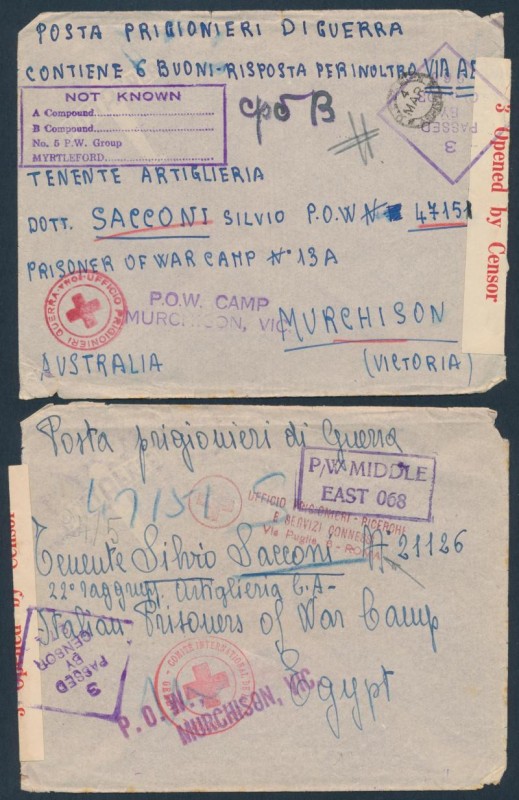 POSTA PRIGIONIERI DI GUERRA
CONTIENE 6 BUONI-RISPOSTA PER INOLTRO VIA AE
NOT KNOWN
A Compound
B Compound
No. 5 P.W. Group
MYRTLEFORD.
cpo B
4 MAR
3
PASSED
BY
3 Opened by Censor
TENENTE ARTIGLIERIA
DOTT. SACCONI SILVIO P.O.W. N° 47151
PRISONER OF WAR CAMP N° 13A
UFFICIO PRIGIONIERI GUERRA
P.O.W. CAMP
MURCHISON, VIC.
MURCHISON
AUSTRALIA (VICTORIA)
Posta prigionieri di Guerra
P/W MIDDLE
EAST 068
47151 S
UFFICIO PRIGIONIERI - RICERCHE
E SERVIZI CONNESSI
Via Puglie, 6 - ROMA
Tenente Silvio Sacconi N° 21126
22° raggrup. Artiglieria C.A.
Italian Prisoners of War Camp
Egypt
3 Opened by Censor
3
PASSED
BY
CENSOR
COMITÉ INTERNATIONAL DE
P.O.W.
MURCHISON, VIC.